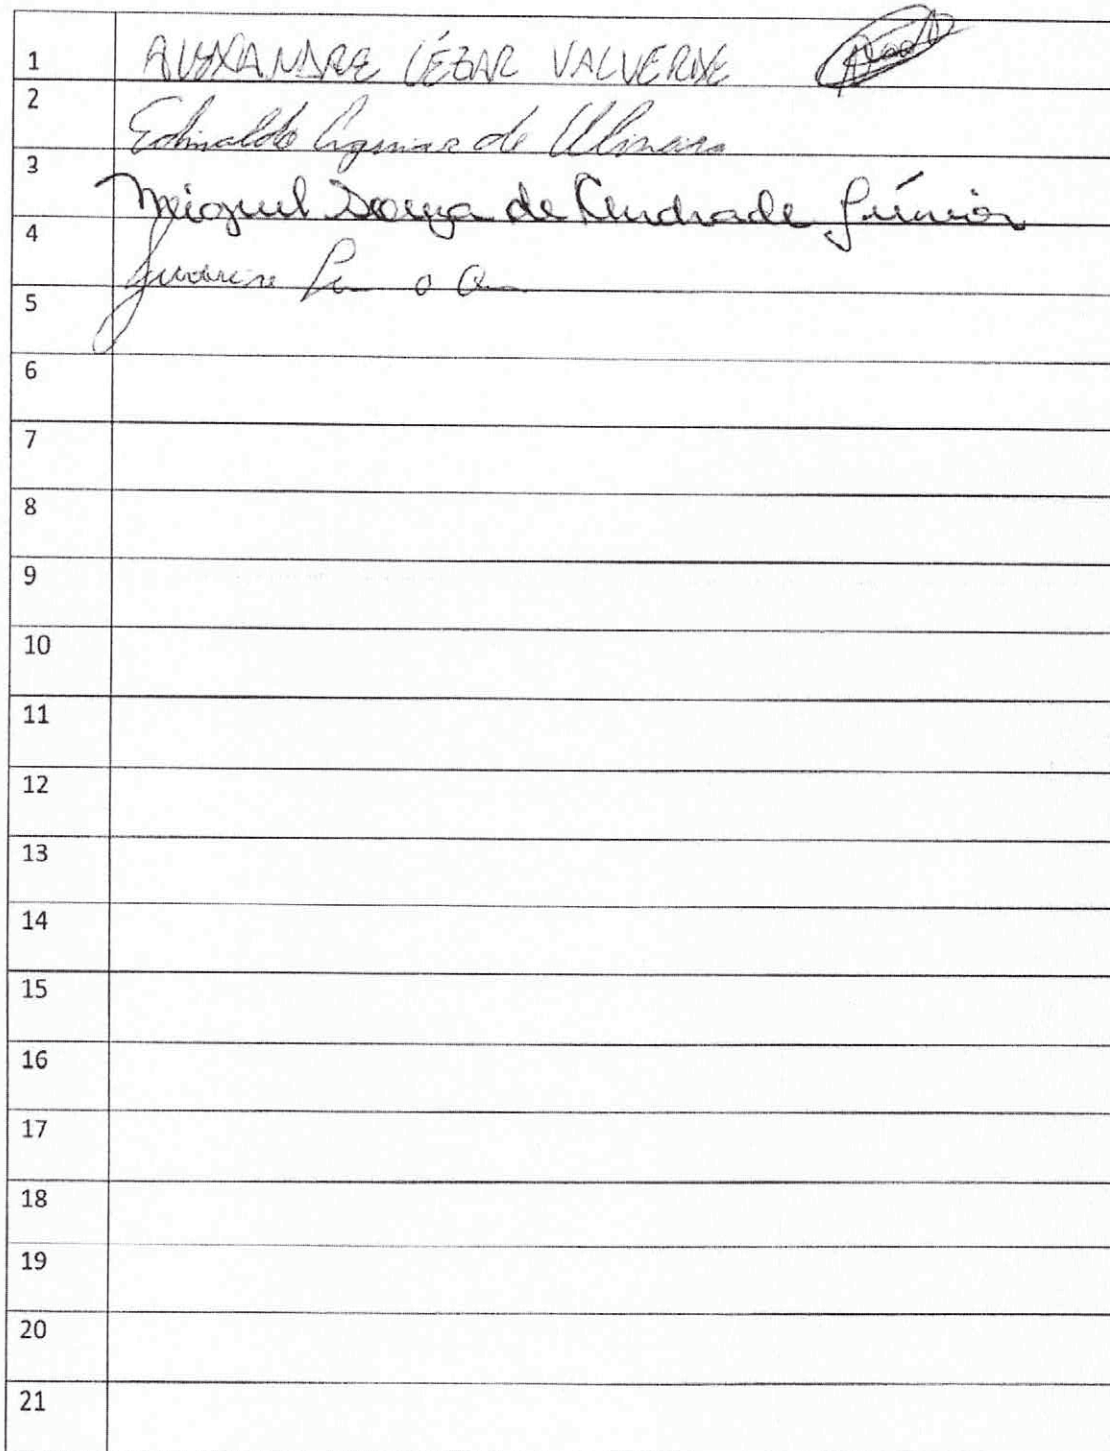 1 ALEXANDRE CÉZAR VALVERDE
2 Edinaldo Aguiar de
3 Miguel Souza de Andrade Júnior
4
5
6
7
8
9
10
11
12
13
14
15
16
17
18
19
20
21